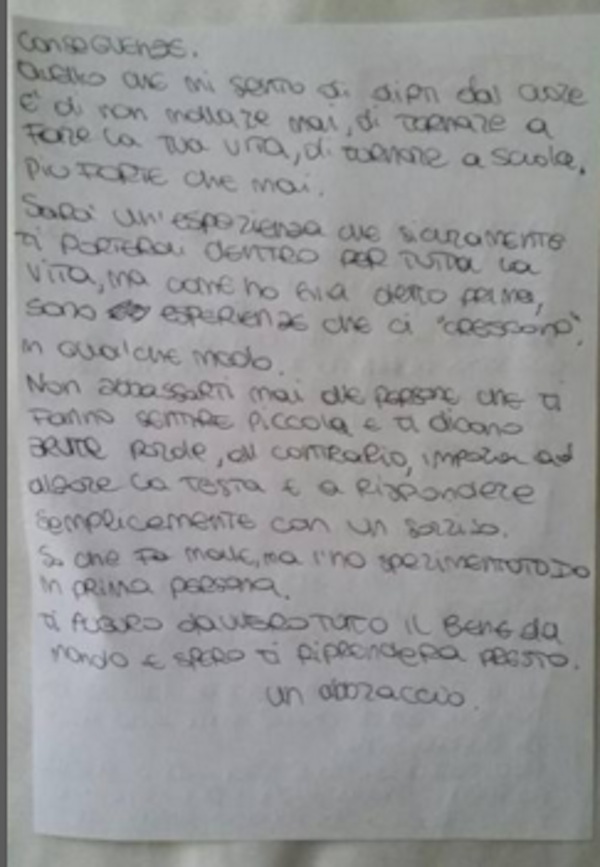 conseguenze.
Quello che mi sento di dirti dal cuore
è di non mollare mai, di tornare a
fare la tua vita, di tornare a scuola,
più forte che mai.
Sarà un'esperienza che sicuramente
ti porterai dentro per tutta la
vita, ma come ho già detto prima,
sono esperienze che ci "crescono",
in qualche modo.
Non abbassarti mai alle persone che ti
fanno sentire piccola e ti dicono
brutte parole, al contrario, impara ad
alzare la testa e a rispondere
semplicemente con un sorriso.
So che fa male, ma l'ho sperimentato io
in prima persona.
Ti auguro davvero tutto il bene da
mondo e spero ti riprenderai presto.
un abbraccio.